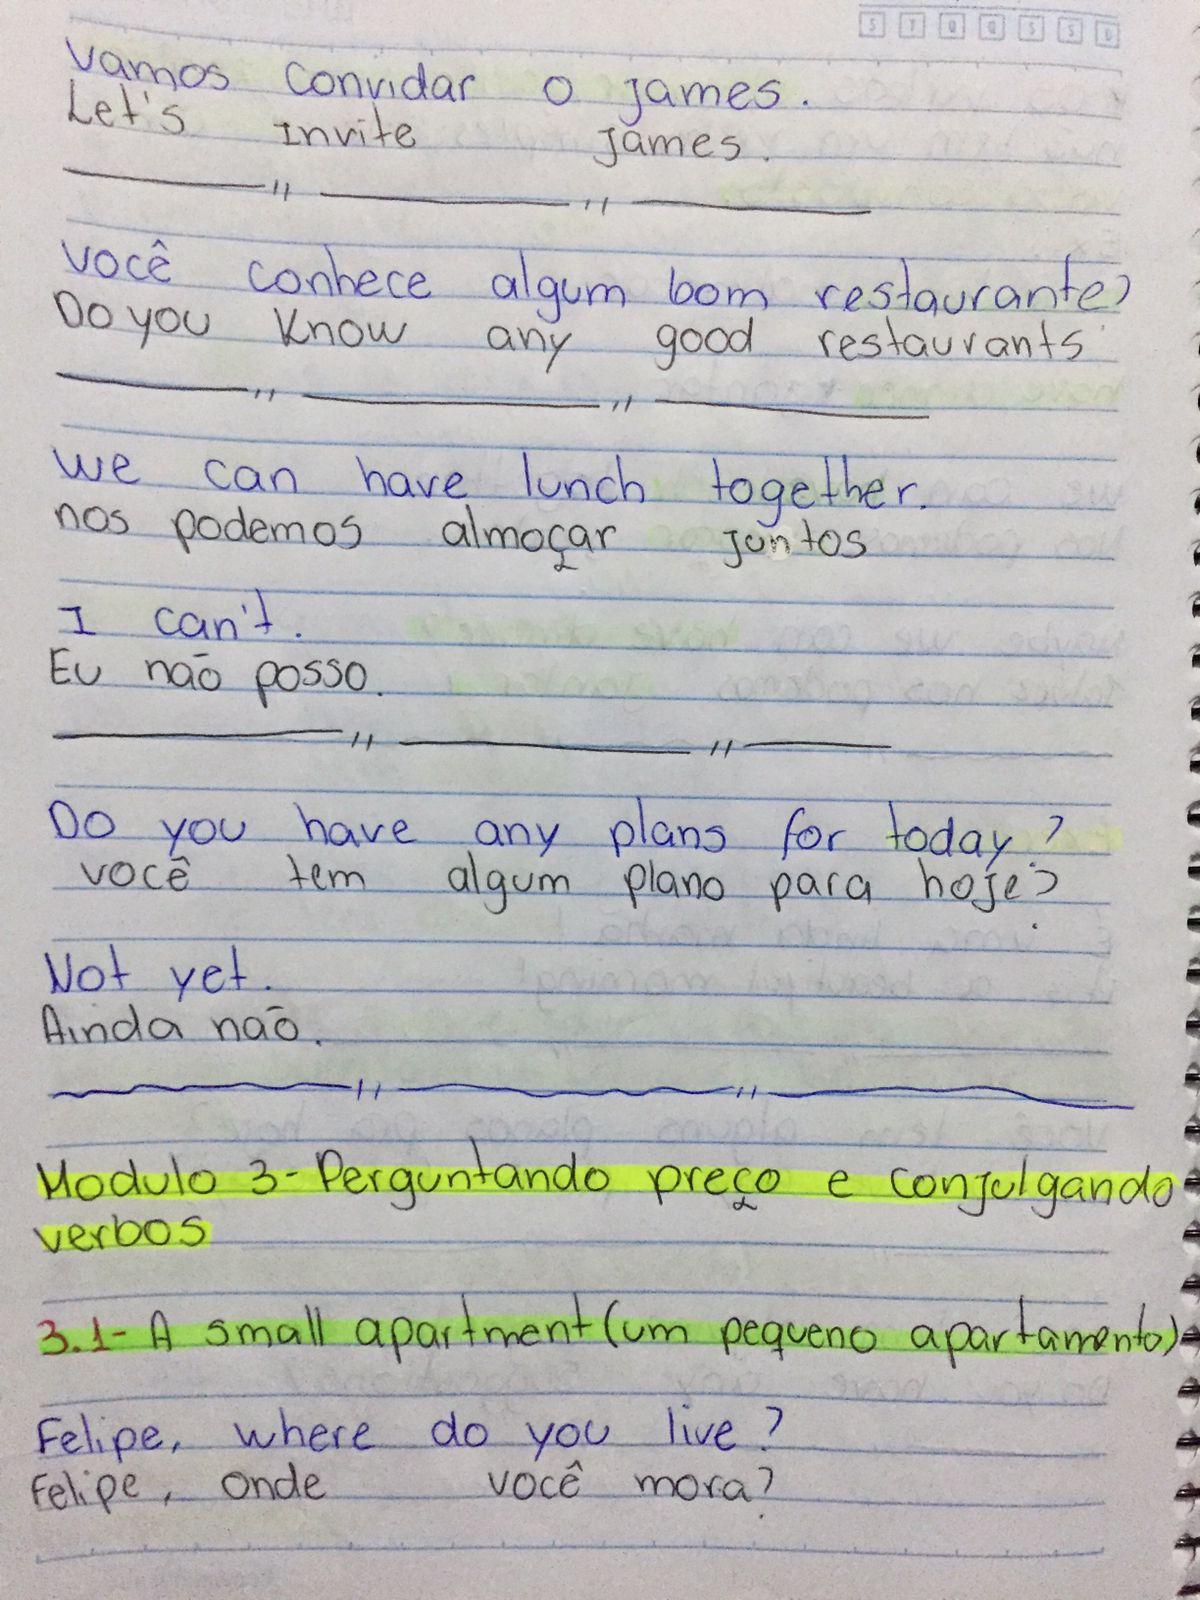 S T Q Q S S D
Vamos convidar o James.
Let's invite James.
Você conhece algum bom restaurante?
Do you know any good restaurants
We can have lunch together.
nos podemos almoçar juntos
I can't.
Eu não posso.
Do you have any plans for today?
você tem algum plano para hoje?
Not yet.
Ainda não.
Modulo 3 - Perguntando preço e conjulgando
verbos
3.1 - A small apartment (um pequeno apartamento)
Felipe, where do you live?
Felipe, onde você mora?